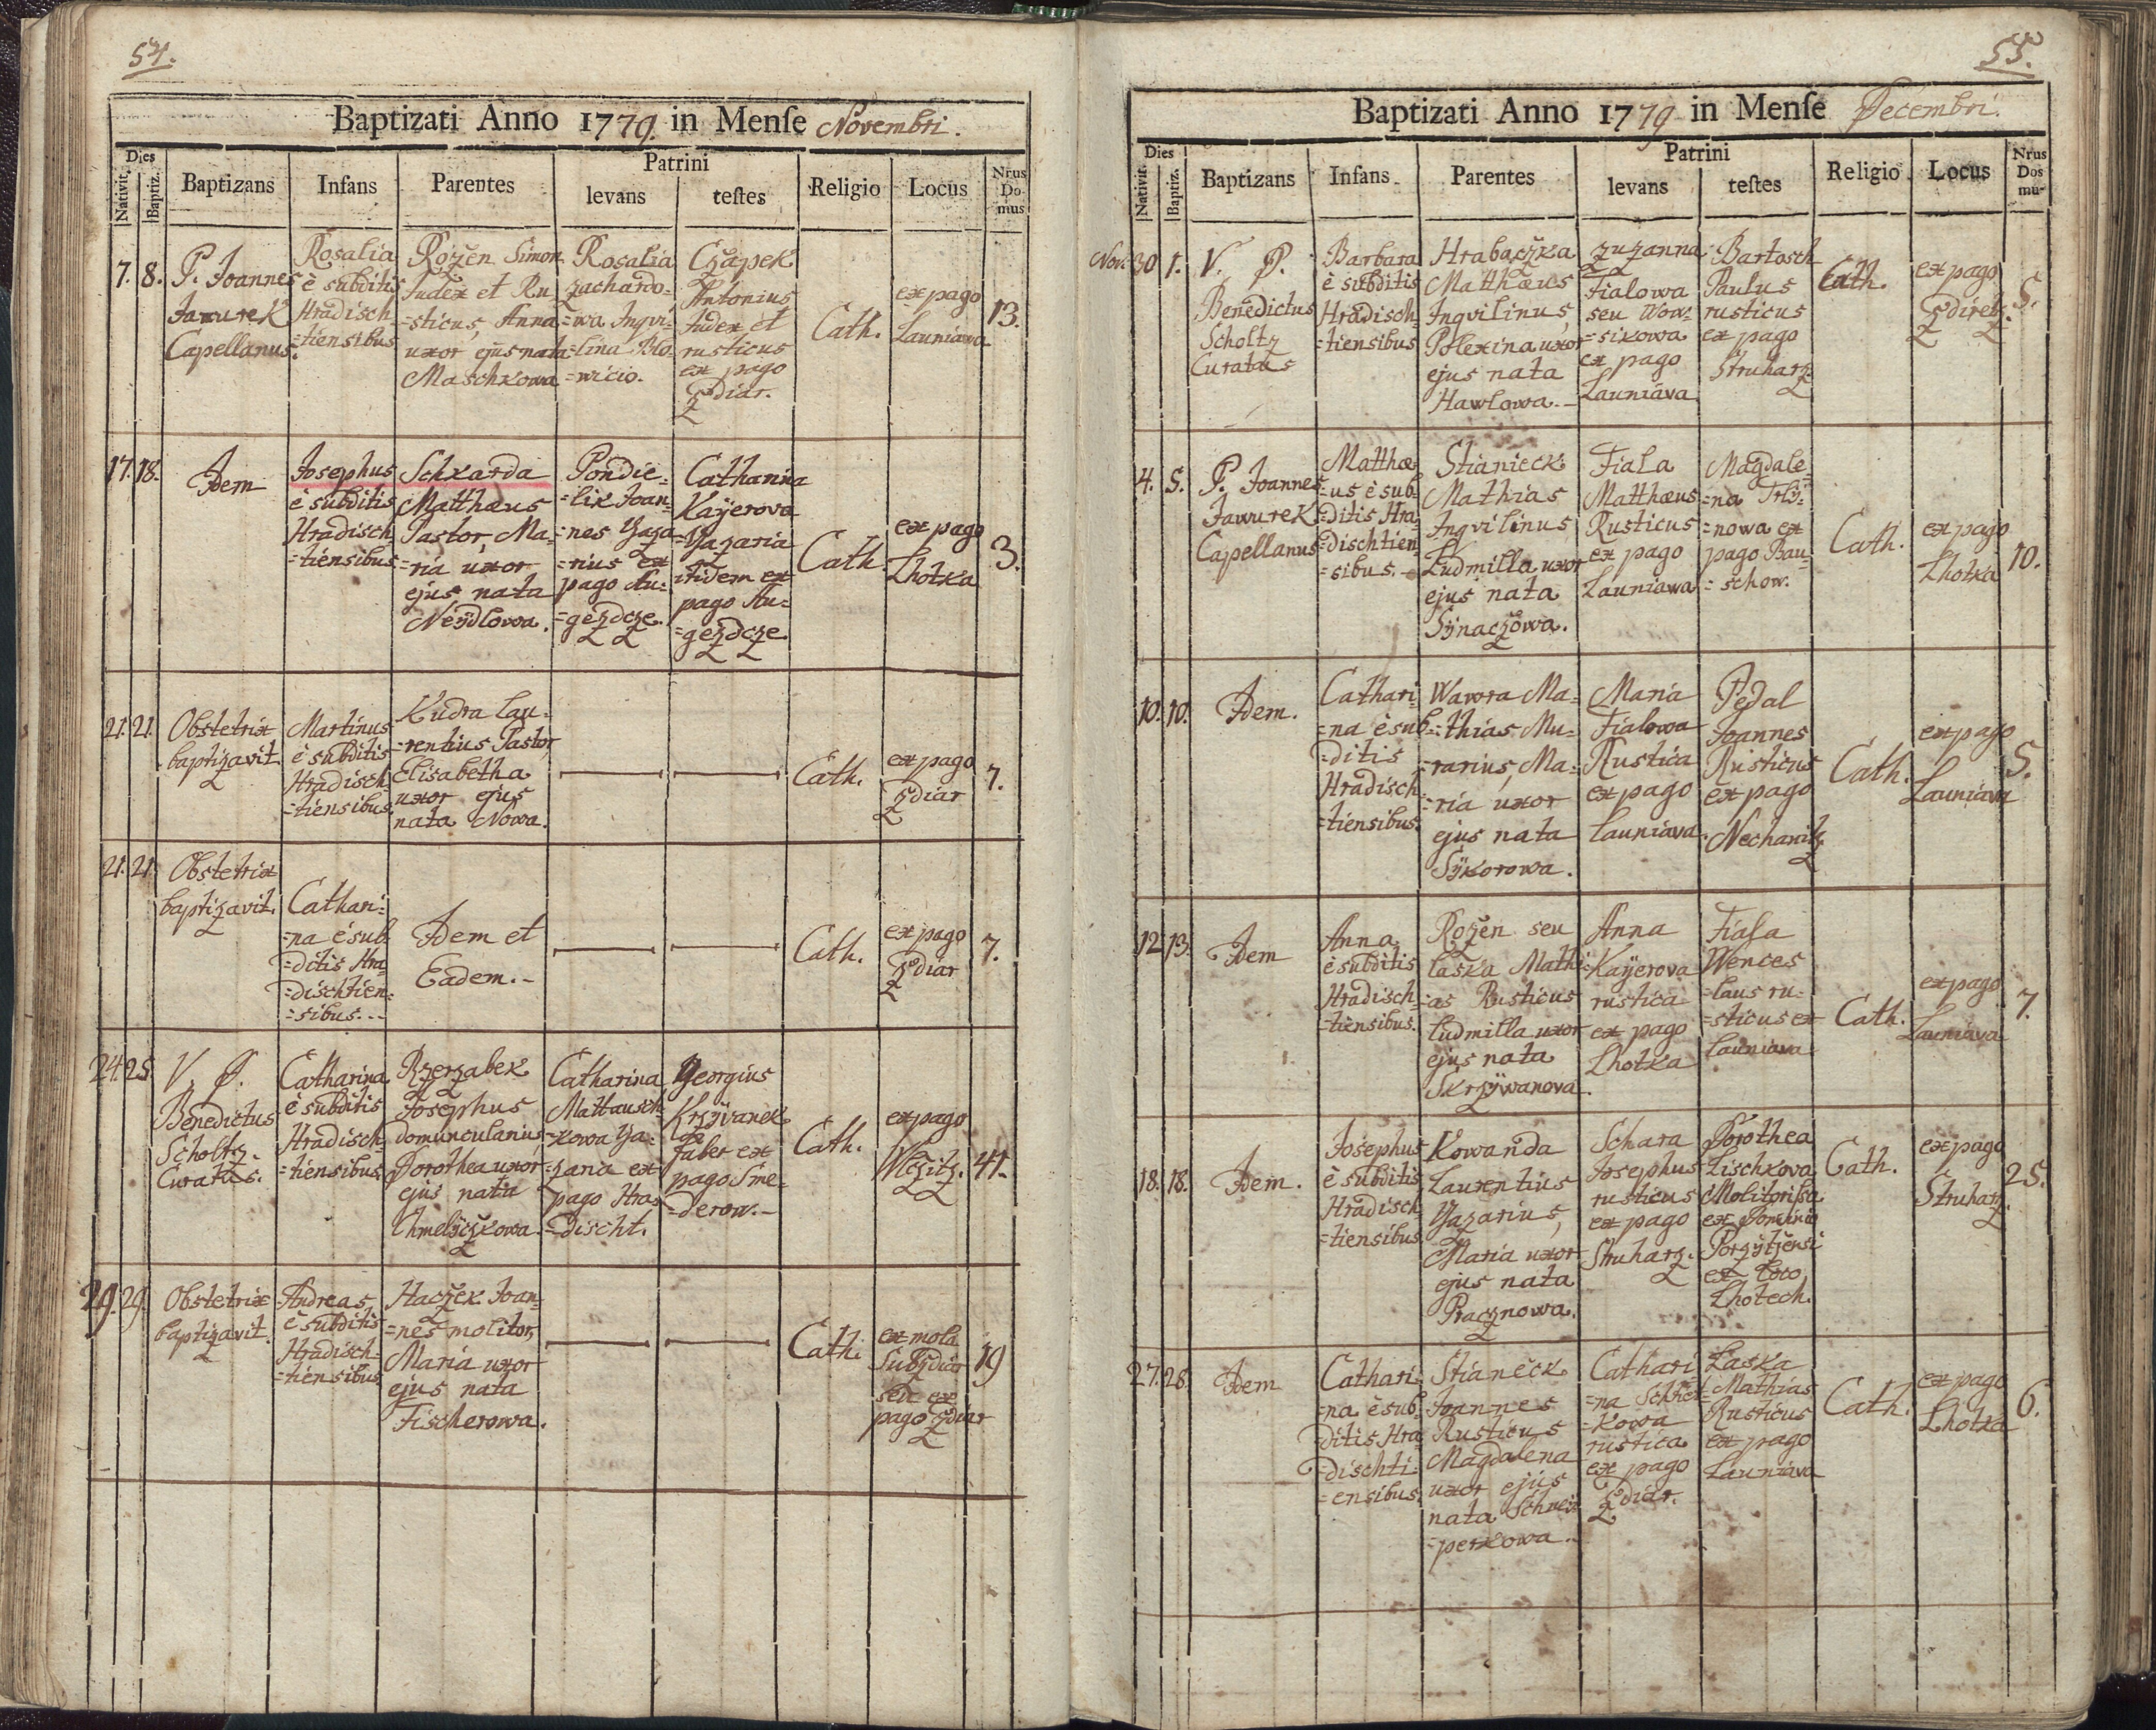 54.
Baptizati Anno 1779. in Menſe Novembri.
Dies
Nativit.
Baptiz.
Baptizans
Infans
Parentes
Patrini
levans
teſtes
Religio
Locus
Nrus
Do
mus
7. 8.
P. Joannes
Jawurek
Capellanus.
Rosalia
è subditis
Hradisch
=tiensibus
Rozen Simon
Judex et Ru
=sticus, Anna
uxor ejus nata
Maschkowa
Rosalia
zachardo-
=wa Inqvi-
=lina Blo
=wicio.
Czapek
Antonius
Judex et
rusticus
ex pago
Zdiar.
Cath.
ex pago
Launiawa
13.
17. 18.
Idem
Josephus
è subditis
Hradisch
=tiensibus
Schkarda
Matthæus
Pastor, Ma-
=ria uxor
ejus nata
Neÿdlowa.
Pondie=
=lik Joan=
=nes Yaza
=rius ex
pago Au-
=gezdcze.
Catharina
Kaÿerova
Yazaria
itidem ex
pago Au=
=gezdcze
Cath.
ex pago
Lhotka
3.
21. 21.
Obstetrix
baptizavit
Martinus
è subditis
Hradisch
=tiensibus
Kudra Lau-
=rentius Pastor,
Elisabetha
uxor ejus
nata Nowa.
Cath.
ex pago
Zdiar
7.
21. 21.
Obstetrix
baptizavit.
Cathari=
=na è sub
=ditis Hra
=dischtien=
=sibus.--
Idem et
Eadem.-
Cath.
ex pago
Zdiar
7.
24. 25
V. P.
Benedictus
Scholtz.
Curatus.
Catharina
è subditis
Hradisch
=tiensibus
Rzerzabek
Josephus
domuncularius
Dorothea uxor
ejus nata
Chmelÿczkowa
Catharina
Mattausch
=kowa Ya-
=zaria ex
pago Hra=
=discht.
Georgius
Krzÿvanek
faber ex
pago Sme=
=derow.-
Cath.
ex pago
Wczitz.
41.
29. 29.
Obstetrix
baptizavit.
Andreas
è subditis
Hradisch=
=tiensibus
Haczek Joan=
=nes molitor,
Maria uxor
ejus nata
Fischerowa.
Cath.
ex mola
Subzdiar
seu ex
pago Zdiar
19
55.
Baptizati Anno 1779 in Menſe Decembri.
Dies
Nativit.
Baptiz.
Baptizans
Infans
Parentes
Patrini
levans
teſtes
Religio
Locus
Nrus
Dos
mu-
Nov. 30 1.
V. P.
Benedictus
Scholtz
Curatus
Barbara
è subditis
Hradisch=
=tiensibus
Hrabaczka
Matthæus
Inqvilinus,
Polexina uxor
ejus nata
Hawlowa.-
zuzanna
Fialowa
seu Wow=
=sikowa
ex pago
Launiava
Bartosch
Paulus
rusticus
ex pago
Struharz
Cath.
ex pago
Zdiretz.
5.
4. 5.
P. Joannes
Jawurek
Capellanus
Matthæ
=us è sub=
=ditis Hra=
=dischtien=
=sibus.-
Stianieck
Mathias
Inqvilinus
Ludmilla uxor
ejus nata
Sÿnaczowa.
Fiala
Matthæus
Rusticus
ex pago
Launiawa
Magdale=
=na Trlÿ=
=nowa ex
pago Bau=
=schow.
Cath.
ex pago
Lhotka
10.
10. 10.
Idem.
Cathari=
=na è sub=
=ditis
Hradisch
=tiensibus.
Wawra Ma=
=thias Mu=
=rarius, Ma=
=ria uxor
ejus nata
Sÿkorowa.
Maria
Fialowa
Rustica
ex pago
Launiava.
Pedal
Joannes
Rusticus
ex pago
Nechanitz
Cath.
ex pago
Launiava
5.
12 13
Idem
Anna
è subditis
Hradisch=
=tiensibus.
Rozen seu
Laska Mathi
=as Rusticus
Ludmilla uxor
ejus nata
Skrzÿwanova.
Anna
Kaÿerova
rustica
ex pago
Lhotka
Fiala
Wences
=laus ru=
=sticus ex
Launiava
Cath.
ex pago
Launiava
7.
18. 18.
Idem.
Josephus
è subditis
Hradisch
=tiensibus
Kowanda
Laurentius
Yazarius,
Maria uxor
ejus nata
Pracznowa.
Schara
Josephus
rusticus
ex pago
Struharz.
Dorothea
Lischkova
Molitorissa
ex Dominio
ex Loco
Lhotech.
Cath.
ex pago
Struharz.
25.
27. 28.
Idem
Cathari=
=na è sub=
=ditis Hra
=dischti=
=ensibus.
Stianeck
Joannes
Rusticus
Magdalena
uxor ejus
nata Schnei
=perkowa.
Cathari
=kowa
rustica
ex pago
Zdiar.
Laska
Mathias
Rusticus
ex pago
Launiava
Cath.
ex pago
Lhotka
6.